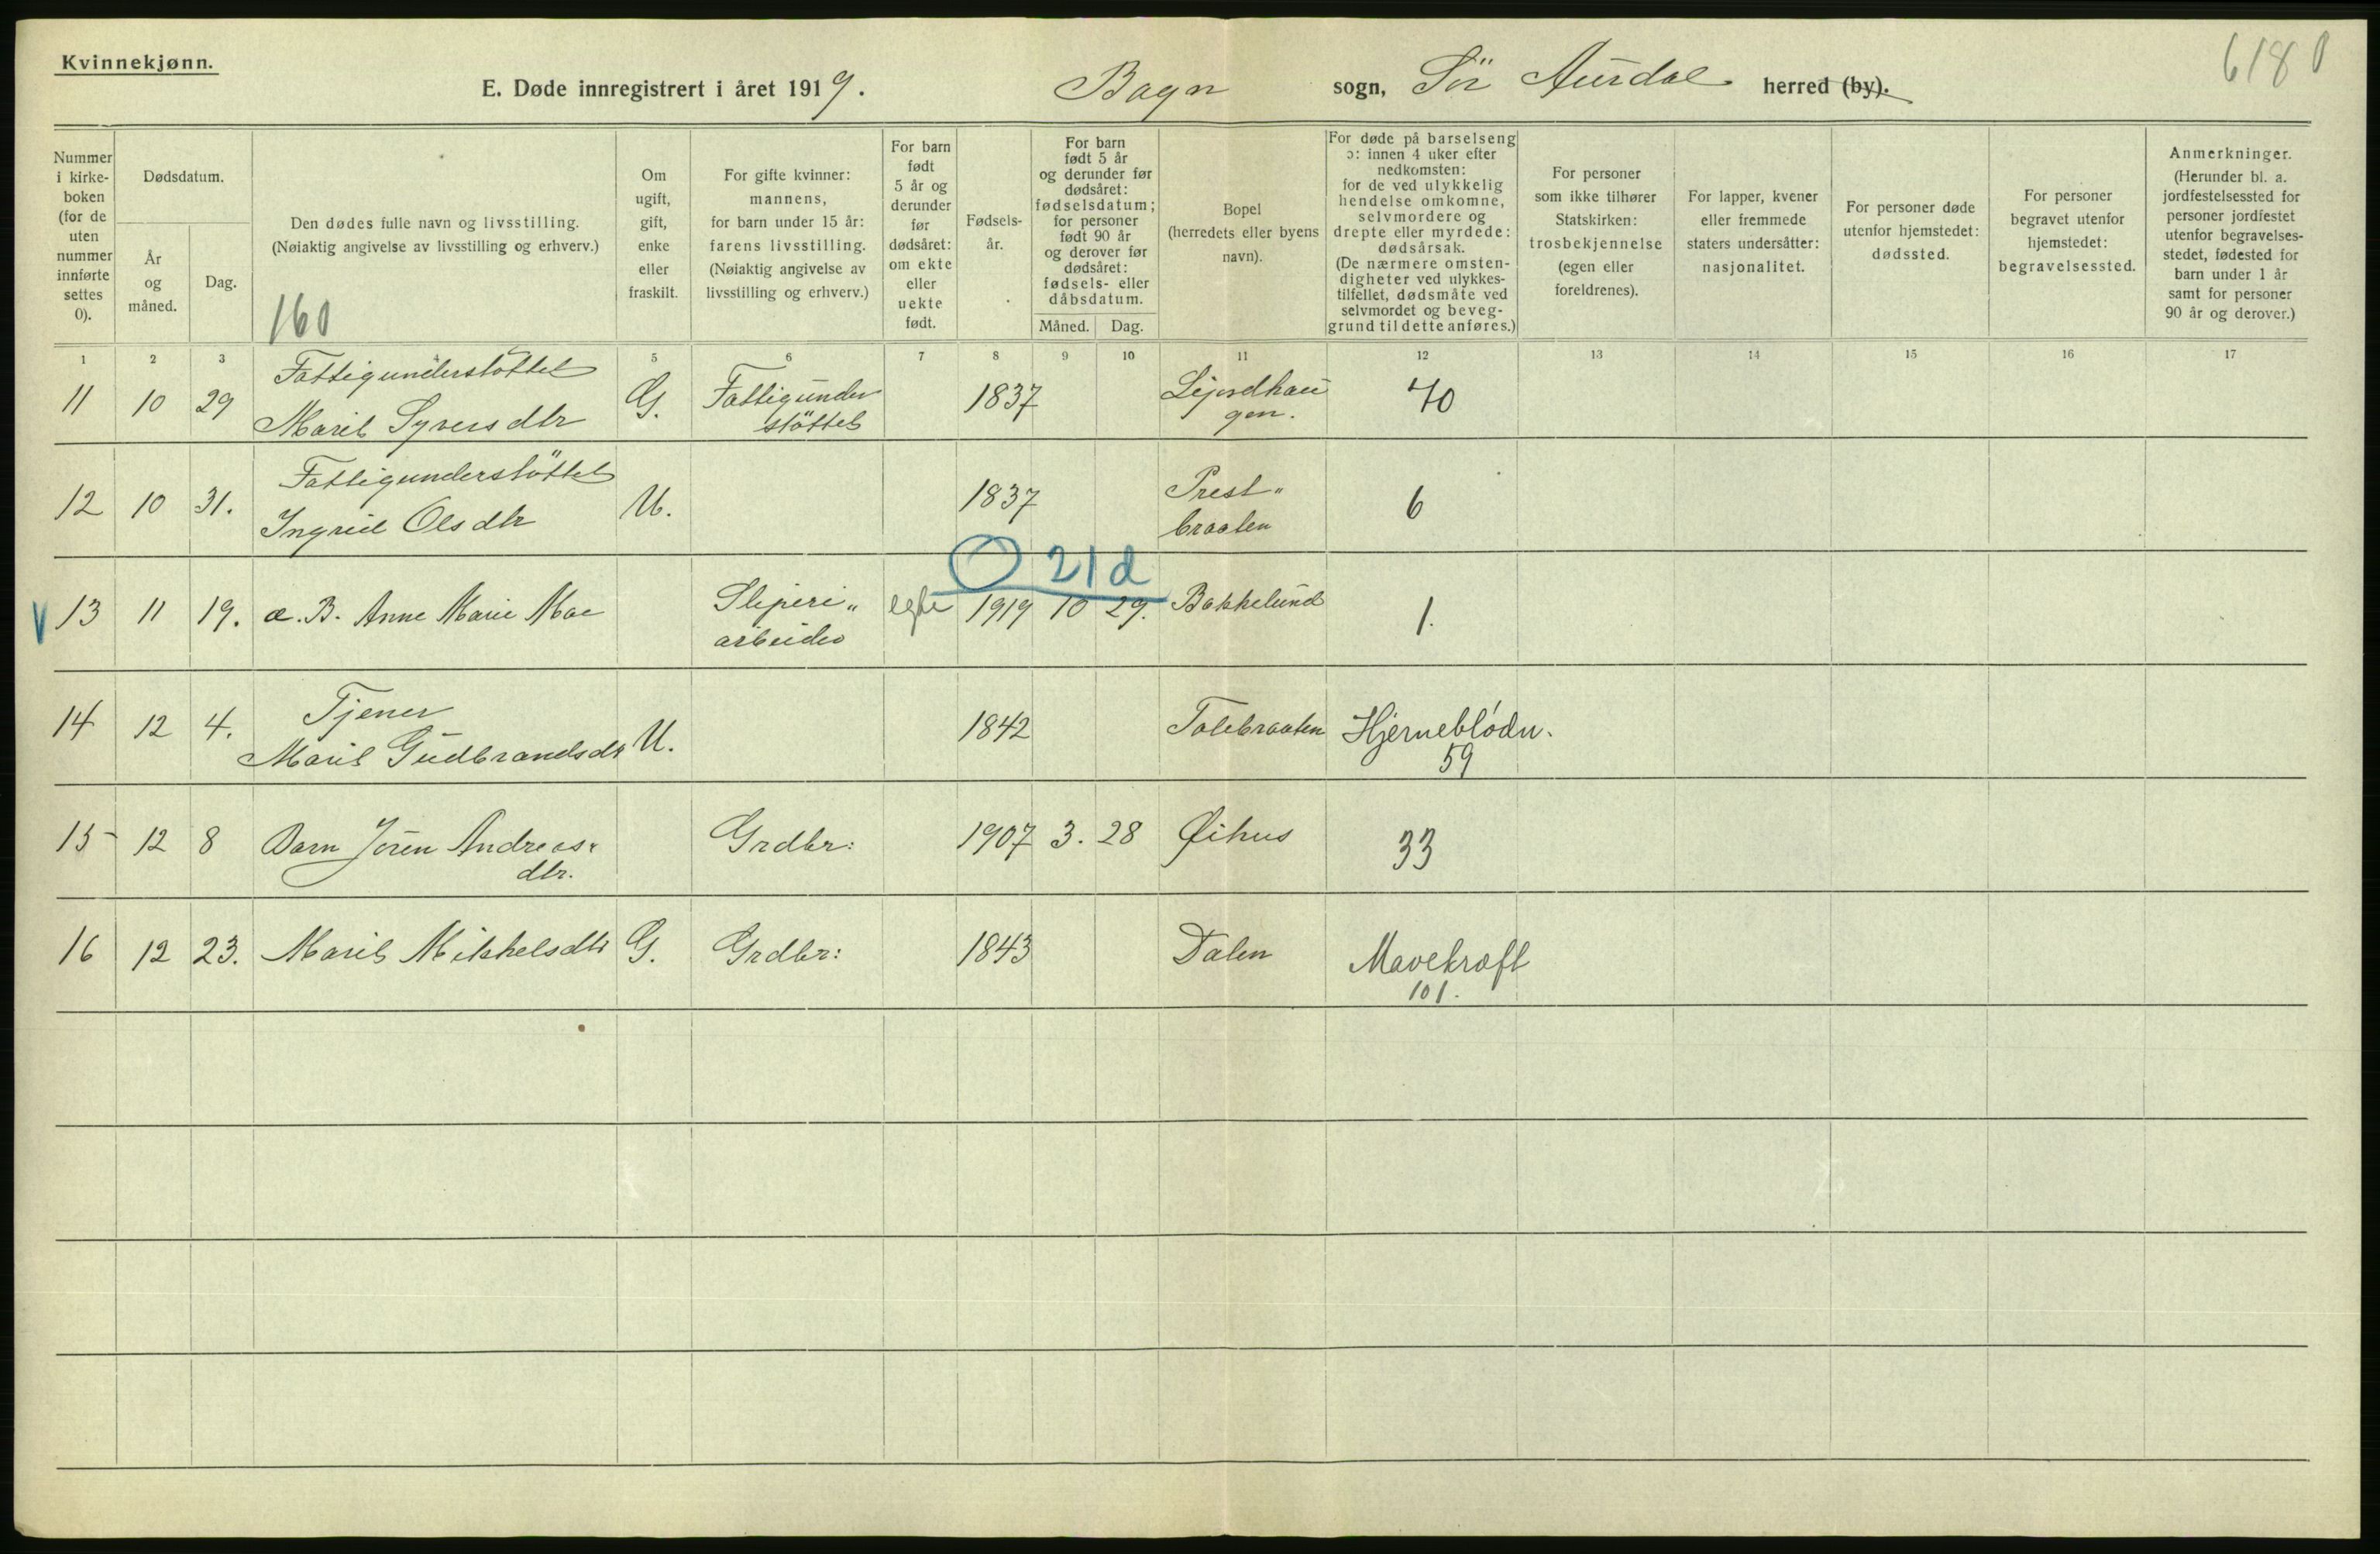 Kvinnekjønn.
E. Døde innregistrert i året 1919. Bagn sogn, Sör Aurdal herred (by).
6180
Nummer i kirke-boken (for de uten nummer innførte settes 0).
Dødsdatum.
År og måned.
Dag.
Den dødes fulle navn og livsstilling.
(Nøiaktig angivelse av livsstilling og erhverv.)
160
Om ugift, gift, enke eller fraskilt.
For gifte kvinner: mannens, for barn under 15 år: farens livsstilling. (Nøiaktig angivelse av livsstilling og erhverv.)
For barn født 5 år og derunder før dødsåret: om ekte eller uekte født.
Fødsels-år.
For barn født 5 år og derunder før dødsåret: fødselsdatum; for personer født 90 år og derover før dødsåret: fødsels- eller dåbsdatum.
Måned. Dag.
Bopel (herredets eller byens navn).
For døde på barselseng ɔ: innen 4 uker efter nedkomsten: for de ved ulykkelig hendelse omkomne, selvmordere og drepte eller myrdede: dødsårsak. (De nærmere omsten-digheter ved ulykkes-tilfellet, dødsmåte ved selvmordet og beveg-grund til dette anføres.)
For personer som ikke tilhører Statskirken: trosbekjennelse (egen eller foreldrenes).
For lapper, kvener eller fremmede staters undersåtter: nasjonalitet.
For personer døde utenfor hjemstedet: dødssted.
For personer begravet utenfor hjemstedet: begravelsessted.
Anmerkninger. (Herunder bl. a. jordfestelsessted for personer jordfestet utenfor begravelses-stedet, fødested for barn under 1 år samt for personer 90 år og derover.)
1 2 3 5 6 7 8 9 10 11 12 13 14 15 16 17
Fattigunderstöttet
11 10 29 Marit Syversdtr G. Fattigunder stöttet 1837 gen. 70
Fattigunderstöttet
12 10 31. Ingrid Olsdtr U. 1837 Prest„ braaten 6
O 21d
V 13 11 19. æ. B. Anne Marie Moe Sliperi„ arbeider egte 1919 10 29. Bakkelund 1.
Tjener
14 12 4. Marit Gudbrandsdr U. 1842 Tolebraaten Hjerneblödn. 59
15 12 8 Barn Jören Andreas„ dtr. Grdbr: 1907 3. 28 Øihus 33
16 12 23. Marit Mikkelsdtr G. Grdbr: 1843 Dalen Mavekræft 101.